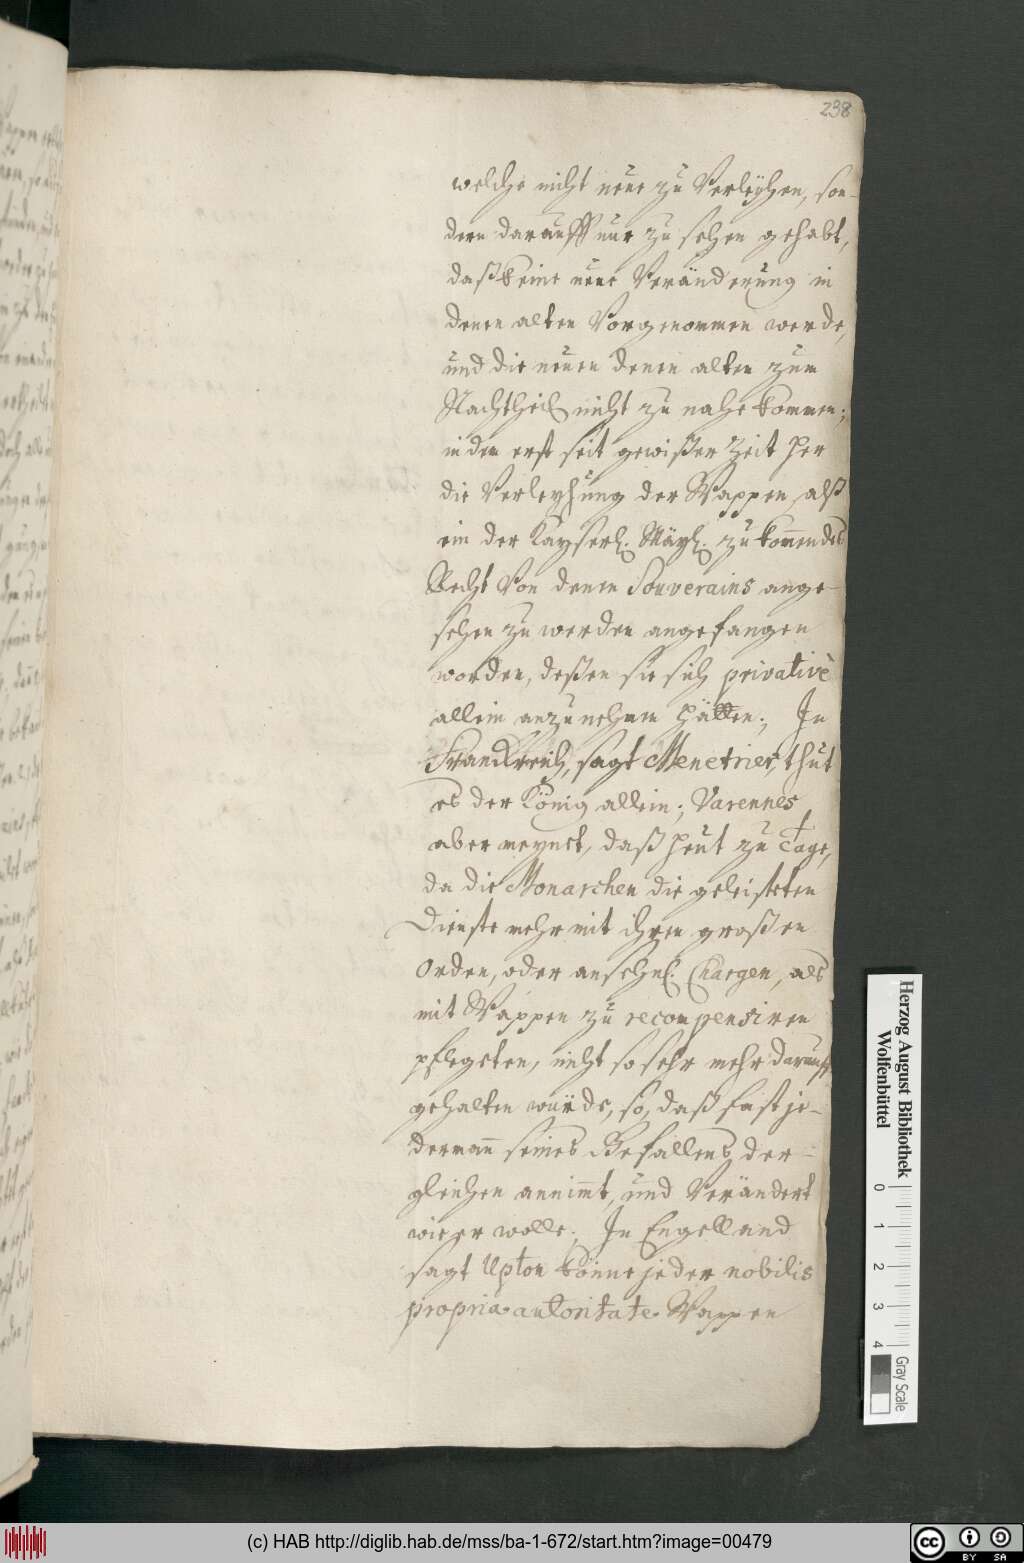 238
welche nicht neue zu Verleyhen, son-
dern darauff nur zu sehen gehabt,
daß keine neue Veränderung in
denen alten Vorgenommen werde,
und die neuen denen alten zum
Nachtheil nicht zu nahe kommen;
indem erst seit gewißer Zeit her
die Verleyhung der Wappen, alß
ein der Kayserl. Mäyt. zukom̄endes
Recht Von denen Souverains ange-
sehen zu werden angefangen
worden, deßen sie sich privativè
allein anzunehmen hätten; In
Franckreich, sagt Menetrier, thut
es der König allein; Varennes
aber meynet, daß heut zu Tage,
da die Monarchen die geleisteten
Dienste mehr mit ihren großen
Orden, oder ansehnl. Chargen, als
mit Wappen zu recompensiren
pflegeten, nicht so sehr mehr darauff
gehalten würde, so, daß fast je-
derman̄ seines Gefallens der-
gleichen annim̄t, und Verändert
wie er wolle; In Engelland
sagt Upton könne jeder nobilis
propria autoritate Wappen
Herzog August Bibliothek
Wolfenbüttel
0 1 2 3 4
Gray Scale
(c) HAB http://diglib.hab.de/mss/ba-1-672/start.htm?image=00479
cc BY SA